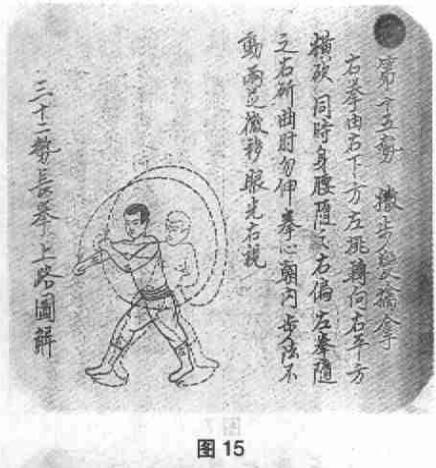 第十五勢 撤步擒拿
右拳由右下方左挑轉向右平方
橫砍 同時身腰隨之右偏左拳隨
之右斫曲肘勿伸拳心朝內步法不
動兩足微移眼光右視
三十二勢長拳上路圖解
图 15